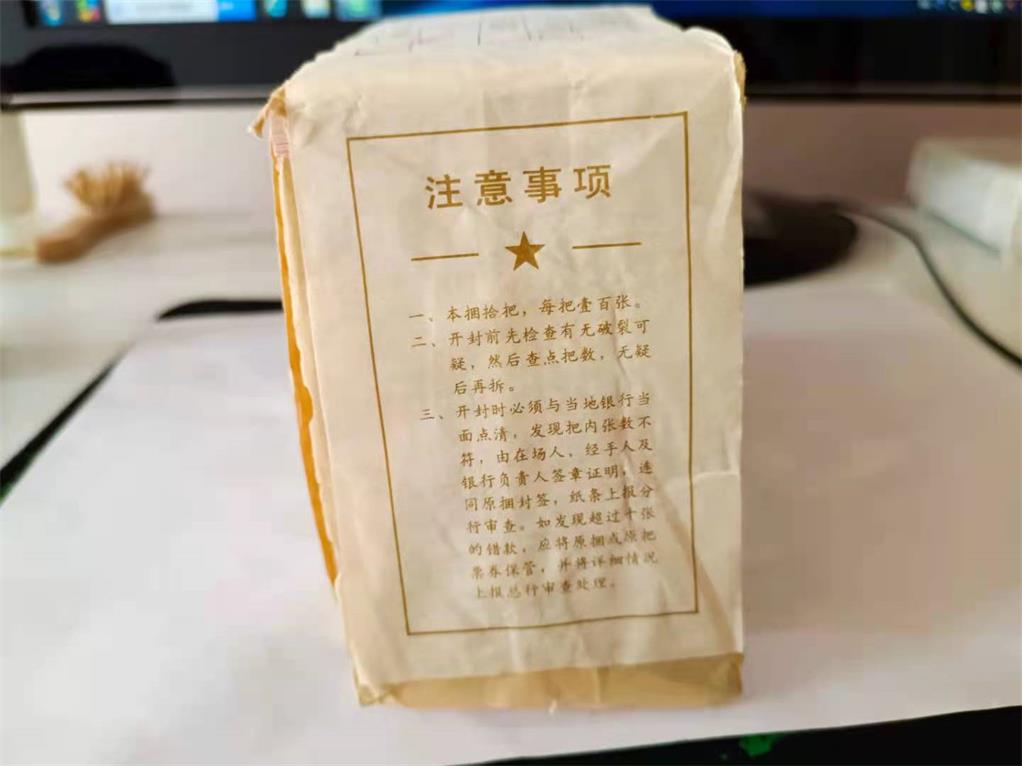 注意事项
一、本捆拾把，每把壹百张。
二、开封前先检查有无破裂可
疑，然后查点把数，无疑
后再拆。
三、开封时必须与当地银行当
面点清，发现把内张数不
符，由在场人、经手人及
银行负责人签章证明，连
同原捆封签，纸条上报分
行审查。如发现超过十张
的错款，应将原捆或原把
票券保管，并将详细情况
上报总行审查处理。